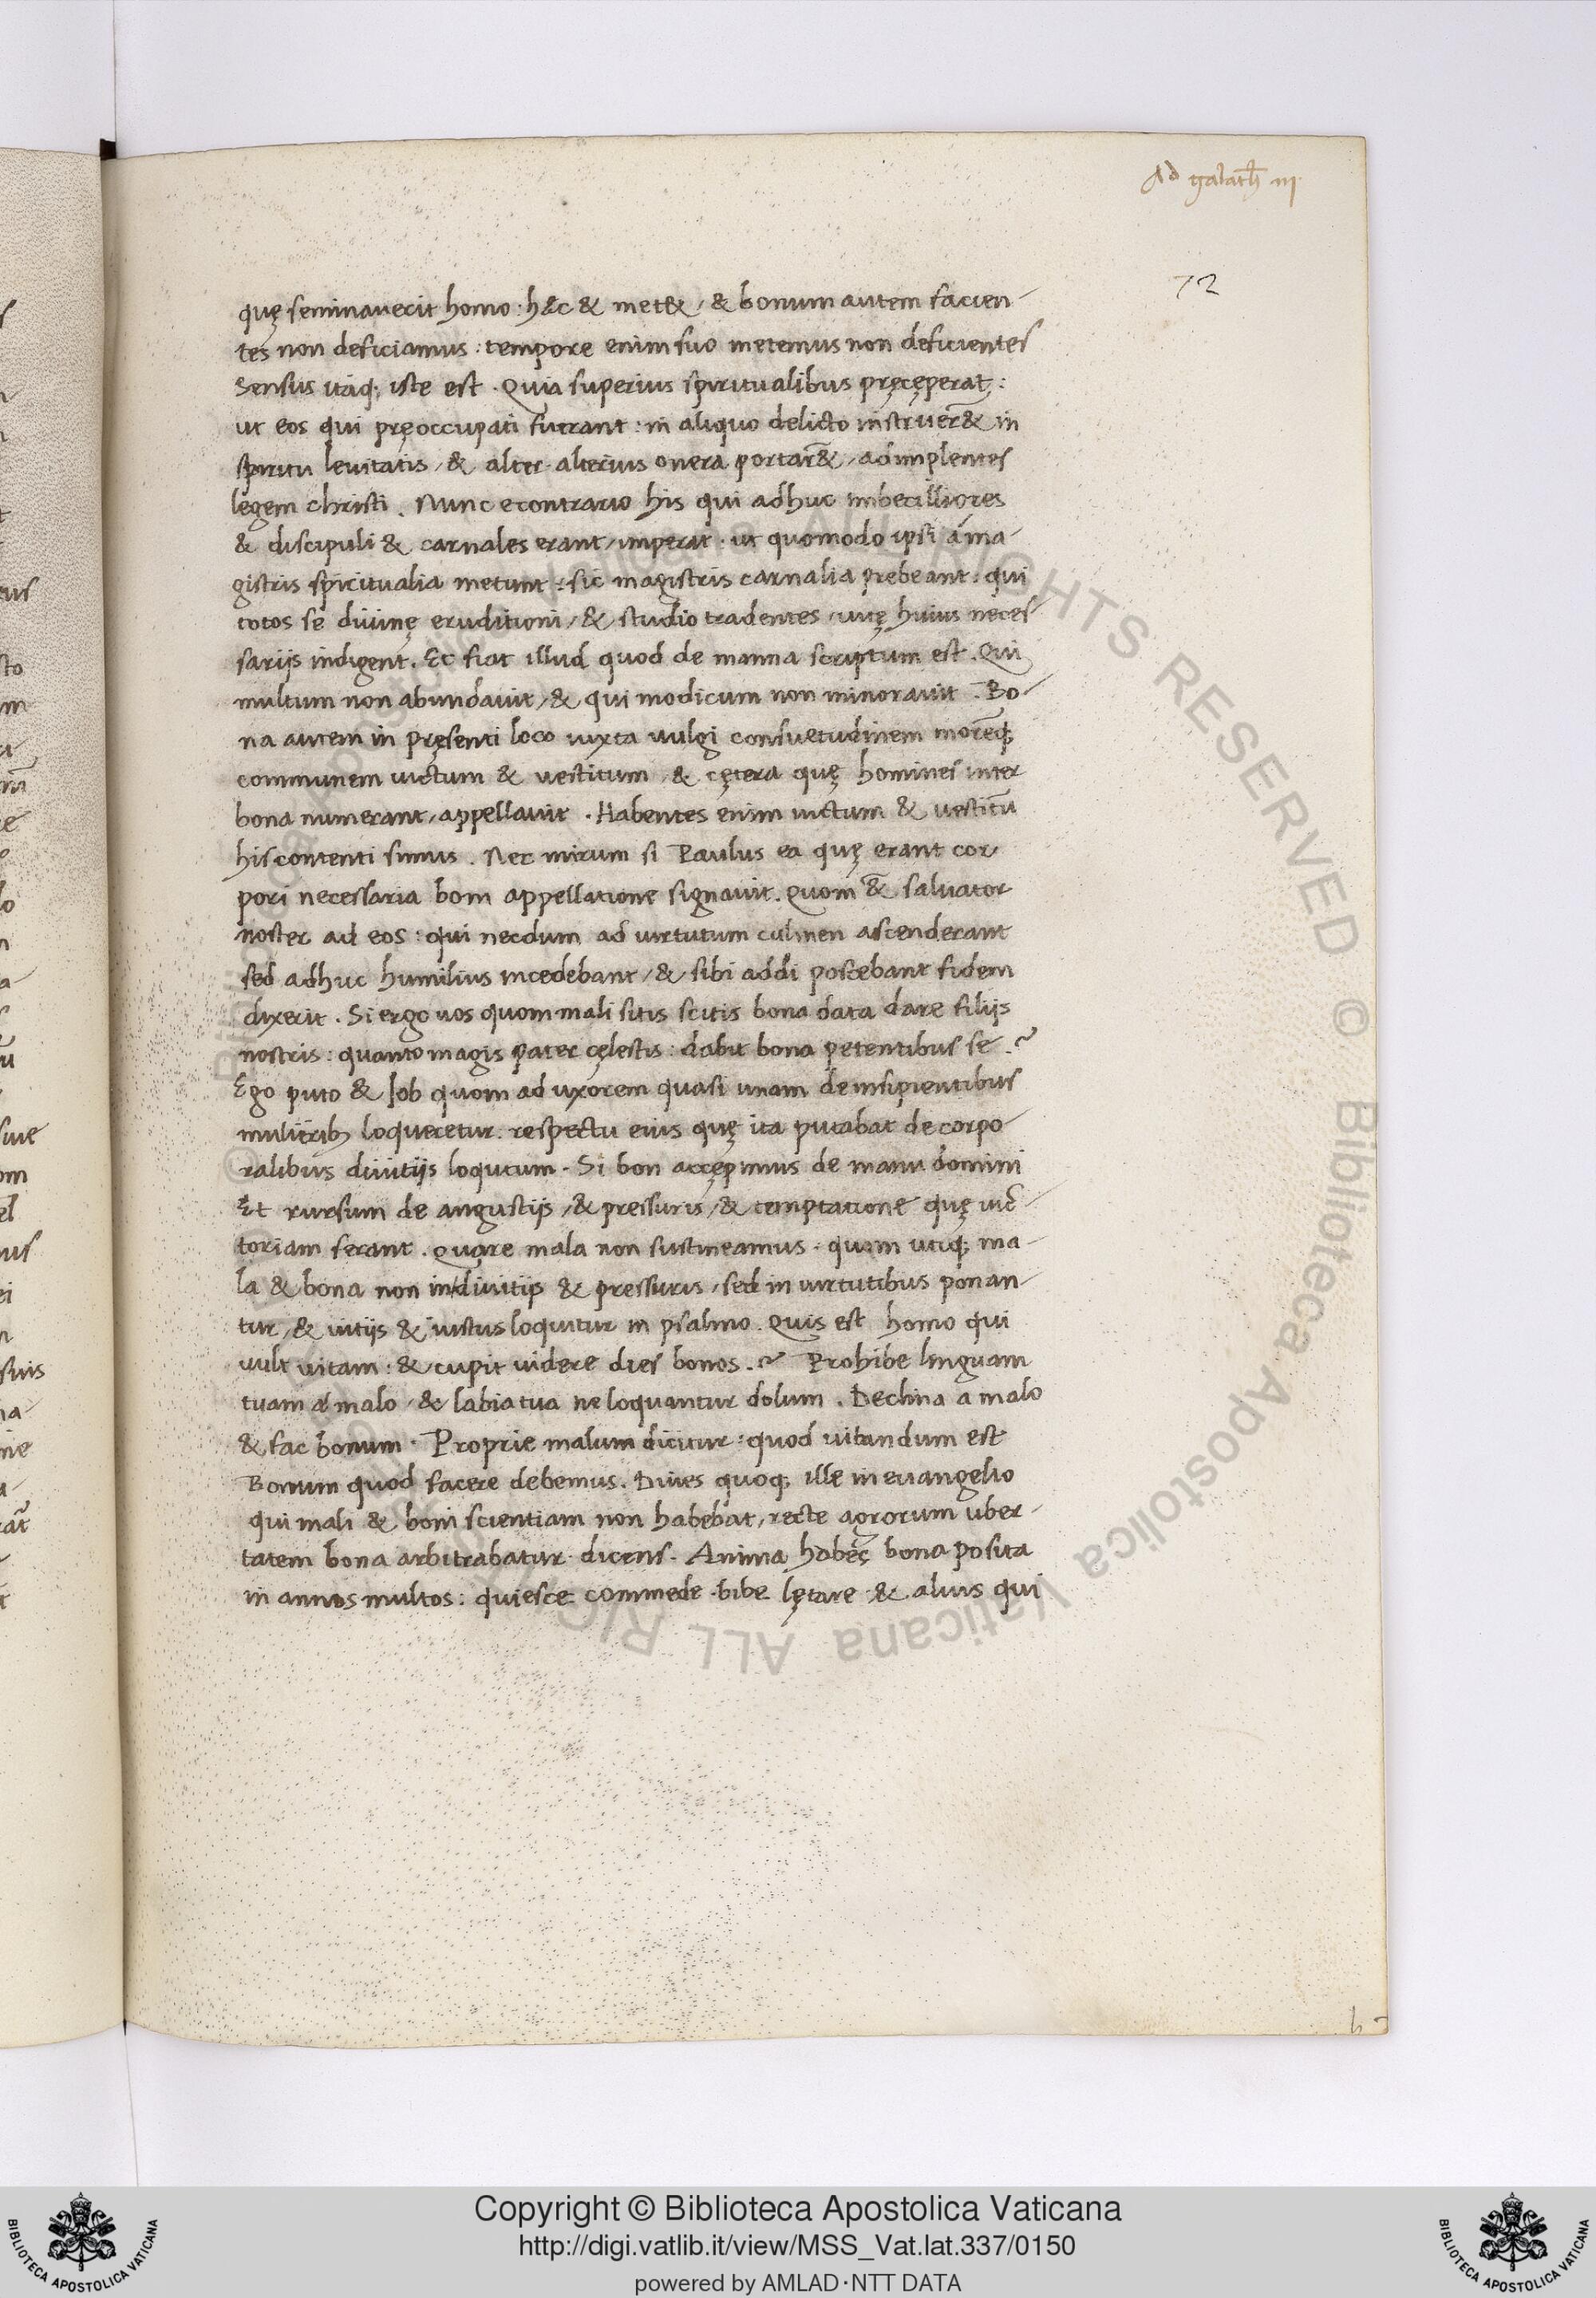 Ad galath iij
72
quę seminauerit homo · h&c & met& / & bonum autem facien-
tes non deficiamus : tempore enim suo metemus non deficientes
Sensus itaq; iste est . Quia superius spiritualibus pręcęperat :
ut eos qui pręoccupati fuerant : in aliquo delicto instruer& in
spiritu leuitatis / & alter alterius onera portar& / adimplentes
legem christi . Nunc econtrario his qui adhuc imbecilliores
& discipuli & carnales erant / imperat · ut quomodo ipsi a ma-
gistris spiritualia metunt : sic magistris carnalia prebeant : qui
totos se diuinę eruditioni / & studio tradentes / uitę huius neces-
sarijs indigent . Et fiat illud quod de manna scriptum est . Qui
multum non abundauit / & qui modicum non minorauit . Bo-
na autem in pręsenti loco iuxta uulgi consuetudinem morēq;
communem uictum & uestitum / & cętera quę homines inter
bona numerant / appellauit . Habentes enim uictum & uestitū
his contenti simus . Nec mirum si Paulus ea quę erant cor-
pori necessaria boni appellatione signauit . Quom & saluator
noster ad eos : qui necdum ad uirtutum culmen ascenderant
sed adhuc humilius incedebant / & sibi addi poscebant fidem
dixerit . Si ergo uos quom mali sitis scitis bona data dare filijs
nostris : quanto magis pater cęlestis : dabit bona petentibus se .~
Ego puto & Job quom ad uxorem quasi unam de insipientibus
mulierib; loqueretur . respectu eius quę ita putabat de corpo-
ralibus diuitijs loqutum . Si bon accępimus de manu domini
Et rursum de angustijs / & pressuris / & temptatione quę uic-
toriam ferant . Quare mala non sustineamus · quom utiq; ma-
la & bona non in diuitijs & pressuris / sed in uirtutibus ponan-
tur / & uitijs & iustus loquitur in psalmo . Quis est homo qui
uult uitam : & cupit uidere dies bonos .~ Prohibe linguam
tuam a malo / & labia tua ne loquantur dolum . Declina a malo
& fac bonum · Proprie malum dicitur : quod uitandum est
Bonum quod facere debemus . Diues quoq; ille in euangelio
qui mali & boni scientiam non habebat / recte agrorum uber-
tatem bona arbitrabatur · dicens . Anima habes bona posita
in annos multos : quiesce commede · bibe lętare · & alius qui
© Biblioteca Apostolica Vaticana ALL RIGHTS RESERVED © Biblioteca Apostolica Vaticana ALL RIG
Copyright © Biblioteca Apostolica Vaticana
http://digi.vatlib.it/view/MSS_Vat.lat.337/0150
powered by AMLAD·NTT DATA
BIBLIOTECA APOSTOLICA VATICANA
BIBLIOTECA APOSTOLICA VATICANA